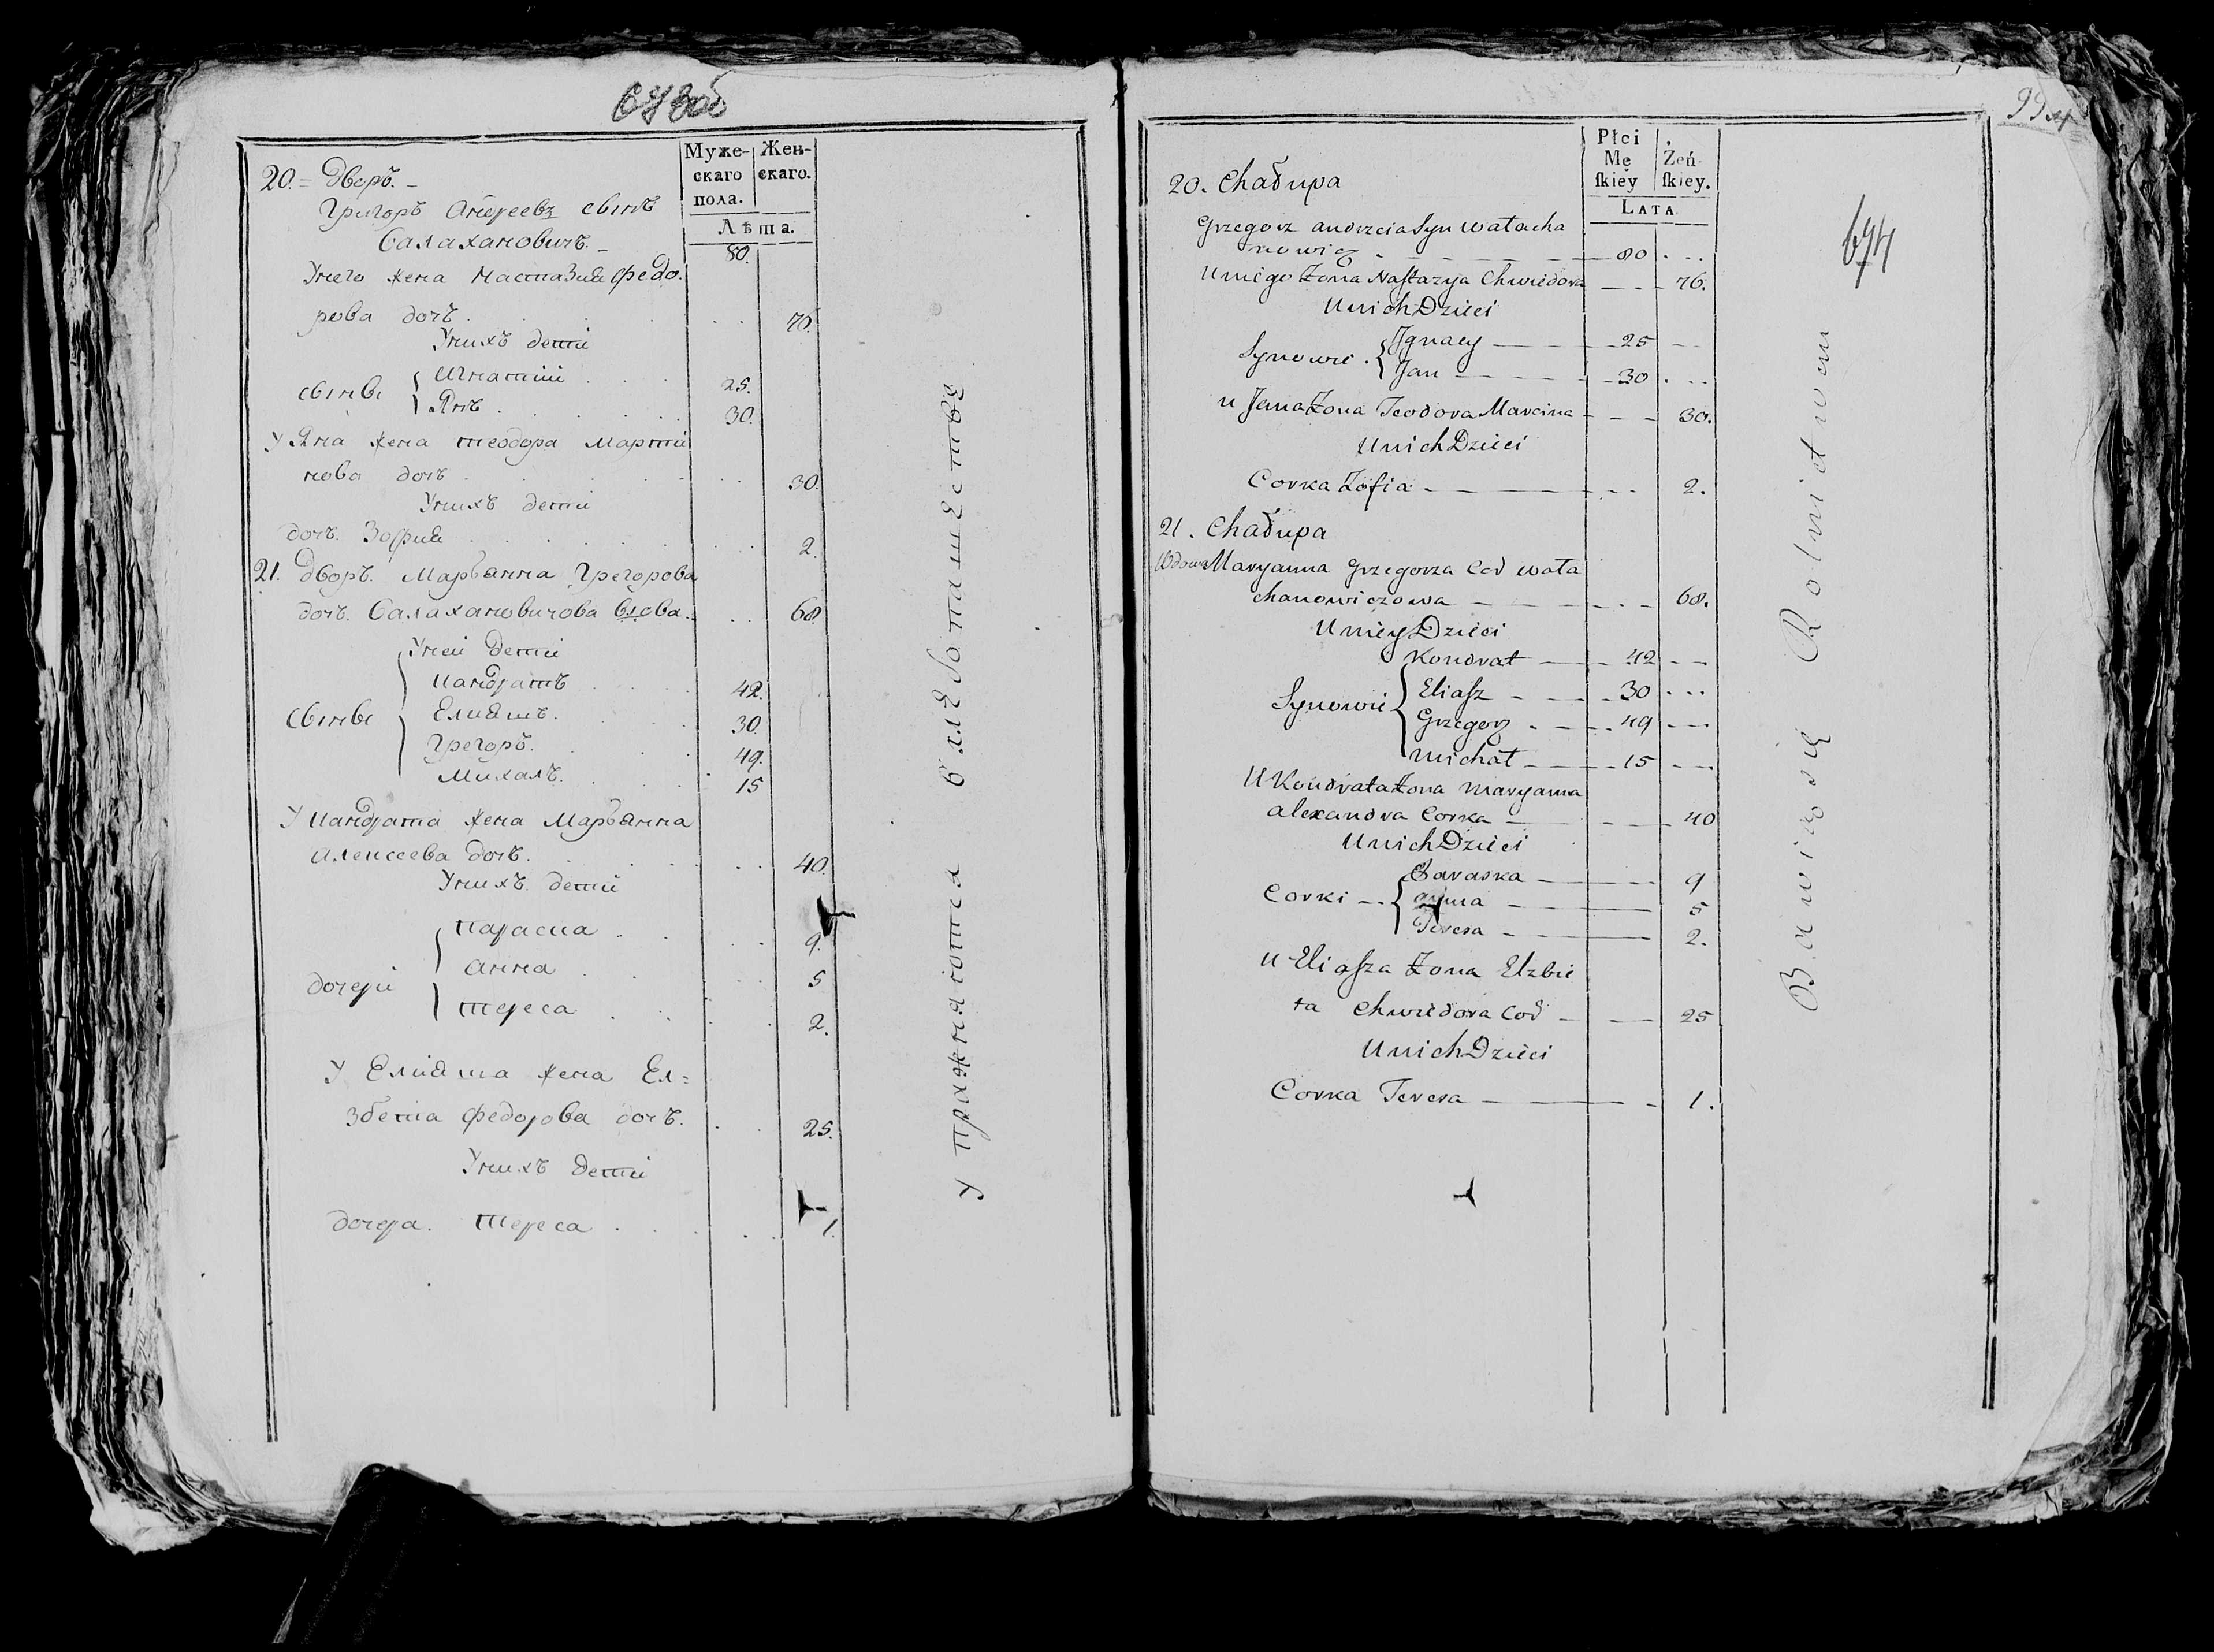 673об
Муже-
скаго
пола.
Жен-
скаго.
Лѣта.
20. = Дворъ. -
Григоръ Андреевъ сынъ
Салахановичъ. - 80.
Унего жена Настазия Федо.
рова дочъ . . . 70.
Унихъ дети
сыны { Игнатий . . . 25.
Янъ . . . 30.
У Яна жена теодора Марти
нова дочъ . . . 30.
Унихъ дети
дочъ. Зофия . . . 2.
21. дворъ. Марьянна Грегорова
дочъ Салахановичова вдова . . 68
Уней дети
Кандратъ . . . 42.
сыны { Елияшъ. . . 30.
Грегоръ. . . 49.
Михалъ. . . 15
У Кандрата жена Марьянна
Алексеева дочъ. . . 40.
Унихъ. дети
Параска . . . 9.
дочери { анна . . . 5
тереса . . . 2.
У Елияша жена Ел=
збета Федорова дочъ. . . 25.
Унихъ дети
дочера. тереса . . . 1.
Упражняются
99
674
Płci
Mę
ſkiey
Żeń-
ſkiey.
LATA
20. Chałupa
Grzegorz andrzeia Syn wałacha
nowicz - 80 . . .
Uniego Żona Naſtazya Chwiedora - - - 76.
Unich Dzieci
Synowie . { Jgnacy - 25 - -
Jan - 30 . . .
u Jana Żona Teodora Marcina - - - 30.
Unich Dzieci
Corka Zofia - . . . 2.
21. Chałupa
Wdowa Maryanna Grzegorza Cod wała
chanowiczowa - - - 68.
Uniey Dzieci
Kondrat - 42 - -
Synowie { Eliaſz - 30 . . .
Grzegorz - 49 - - -
Michał - 15 - - -
U Kondrata Żona Maryanna
alexandra Corka - 40
Unich Dzieci
Paraska - 9
Corki - - { anna - 5
Teresa - 2.
u Eliaſza Żona Elzbie
ta Chwiedora Cod - 25
Unich Dzieci
Corka Teresa - 1.
Bawią się Rolnictwem